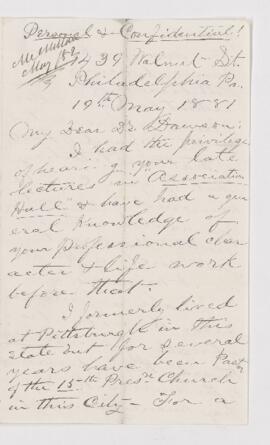 Personal & Confidential!
McMillan
May /81
1439 Walnut St.
Philadelphia Pa.
19th May 1881
My Dear Dr Dawson:
I had the privilege
of hearing your late
lectures in "Association
Hall" & have had a gen
eral knowledge of
your professional char
acter & life work
before that.
I formerly lived
at Pittsburgh in this
state but for several
years have been Pastor
of the 15th Presn Church
in this City - For a